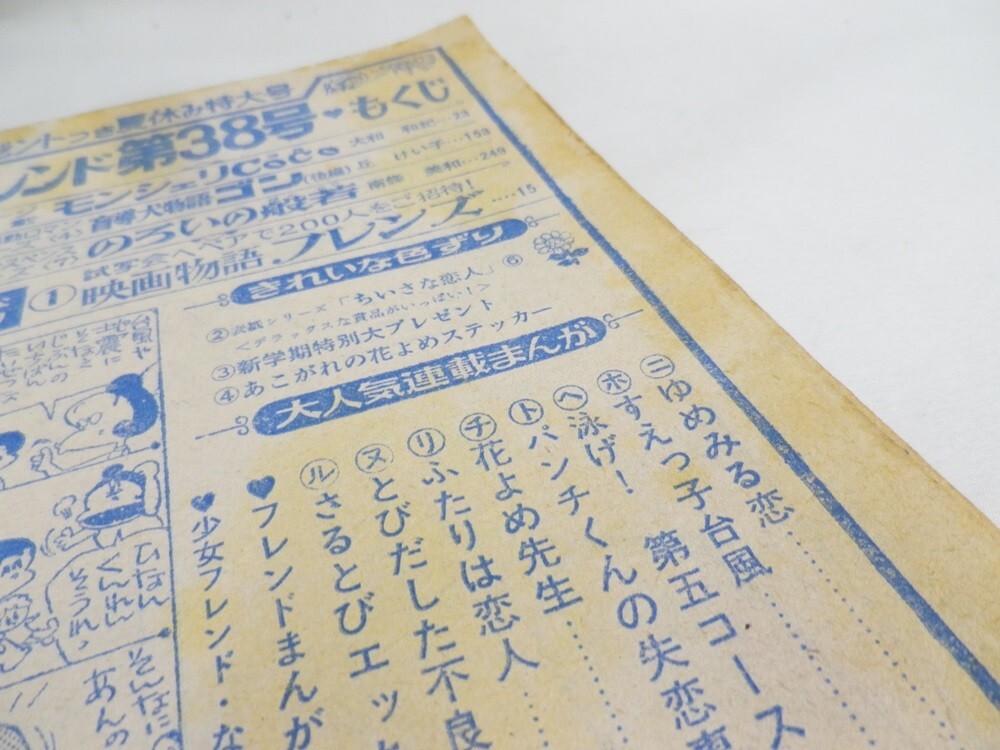 つき夏休み特大号
レンド第38号♥もくじ
モンシェリCoCo 大和 和紀…23
盲導犬物語 ゴン(後編) 丘 けい子…153
のろいの般若 南條 美和…249
試写会へペアで200人をご招待!
①映画物語・フレンズ……15
きれいな色ずり
②表紙シリーズ「ちいさな恋人」⑥
<デラックスな賞品がいっぱい!>
③新学期特別大プレゼント
④あこがれの花よめステッカー
大人気連載まんが
ニゆめみる恋
ホすえっ子台風
ヘ泳げ! 第五コース
トパンチくんの失恋
チ花よめ先生
リふたりは恋人
ヌとびだした不良
ルさるとびエッ
♥フレンドまんが
♥少女フレンド・な
台風や
地震に
そなえ
ひなん
くんれん
そうれっ
そんなに
あんの